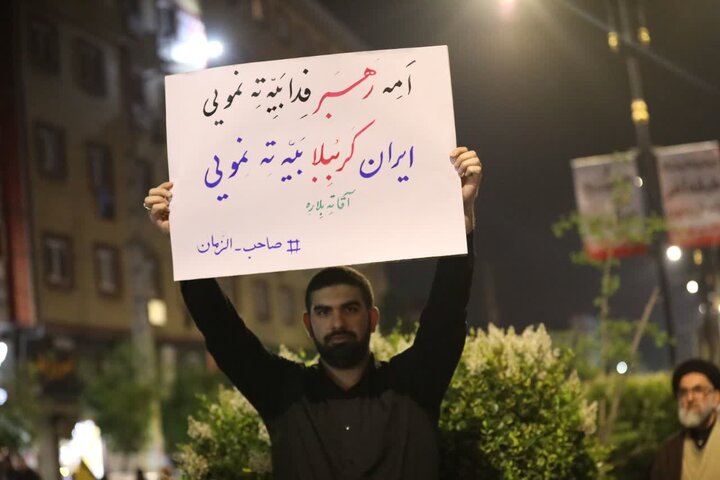 اَمِه رَهبَر فِدا بَیِّه تِه نمویی
ایران کربُبلا بَیّه تِه نمویی
آقا تِه بِلارِه
# صاحب_الزمان